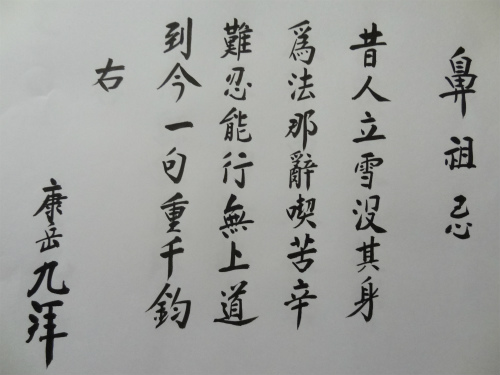 鼻祖忌
昔人立雪没其身
爲法那辭喫苦辛
難忍能行無上道
到今一句重千鈞
右
康岳九拜